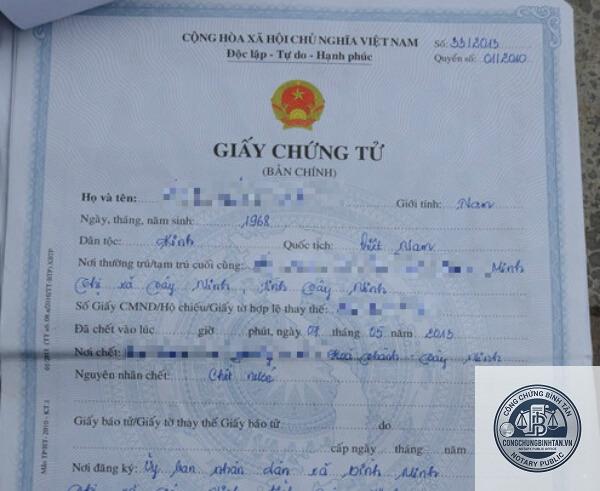 CỘNG HÒA XÃ HỘI CHỦ NGHĨA VIỆT NAM
Độc lập - Tự do - Hạnh phúc
Số: 33/2013
Quyển số: 01/2010
GIẤY CHỨNG TỬ
(BẢN CHÍNH)
Họ và tên: Giới tính: Nam
Ngày, tháng, năm sinh: 1968
Dân tộc: Kinh Quốc tịch: Việt Nam
Nơi thường trú/tạm trú cuối cùng: Minh
thị xã Tây Ninh tỉnh Tây Ninh
Số Giấy CMND/Hộ chiếu/Giấy tờ hợp lệ thay thế:
Đã chết vào lúc giờ phút, ngày 07 tháng 05 năm 2013
Nơi chết: Tây Ninh
Nguyên nhân chết: Chết
Giấy báo tử/Giấy tờ thay thế Giấy báo tử do
cấp ngày tháng năm
Nơi đăng ký: Ủy ban nhân dân xã Bình Minh
CÔNG CHỨNG BÌNH TÂN
CONGCHUNGBINHTAN.VN
NOTARY PUBLIC OFFICE
NOTARY PUBLIC